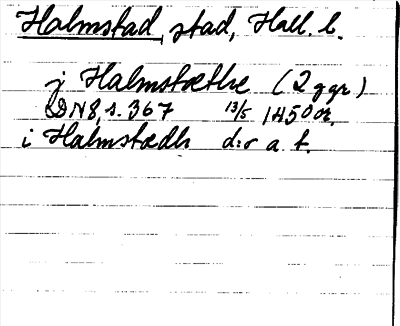 Halmstad, stad, Hall. l.
j Halmstæthe (2 ggr)
DN 8, s. 367 13/5 1450 or.
i Halmstædh d:o a. t.